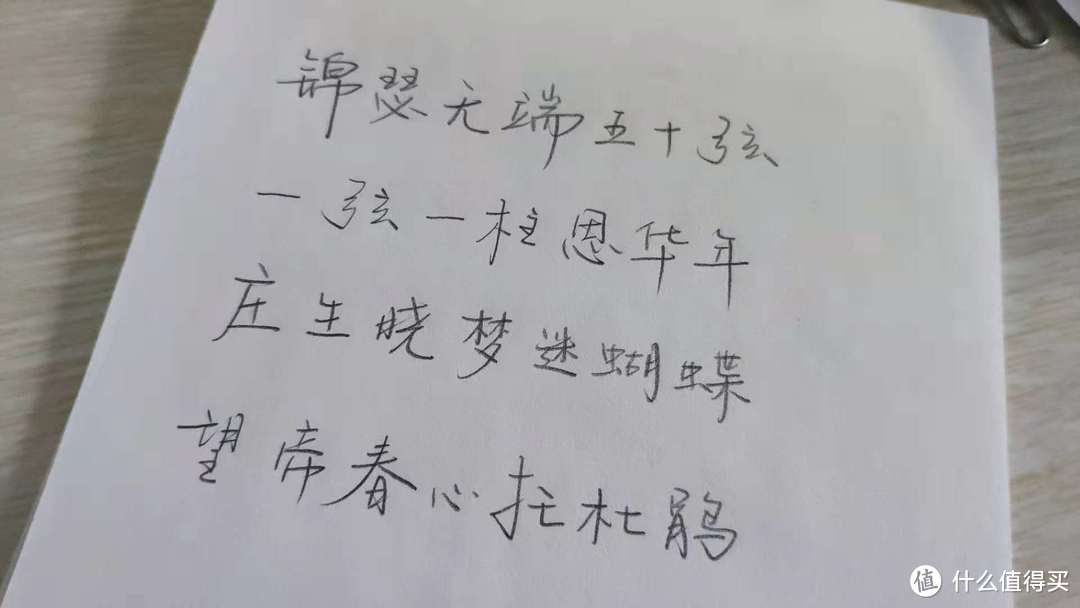 锦瑟无端五十弦
一弦一柱恩华年
庄生晓梦迷蝴蝶
望帝春心托杜鹃
值 什么值得买